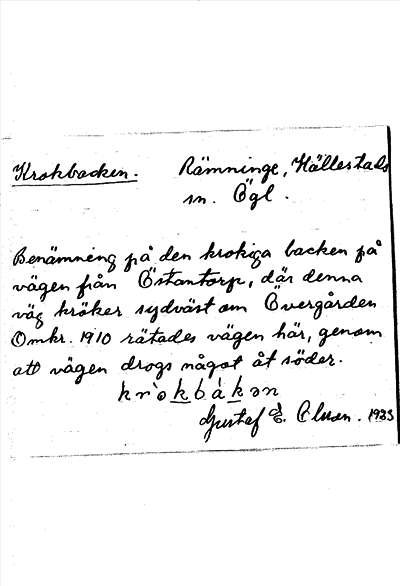 Krokbacken. Rämninge, Hällestads
sn. Ögl.
Benämning på den krokiga backen på
vägen från Östantorp, där denna
väg kröker sydväst om Övergården
Omkr. 1910 rätades vägen här, genom
att vägen drogs något åt söder.
kròkbákən
Gustaf E. Olsson. 1933